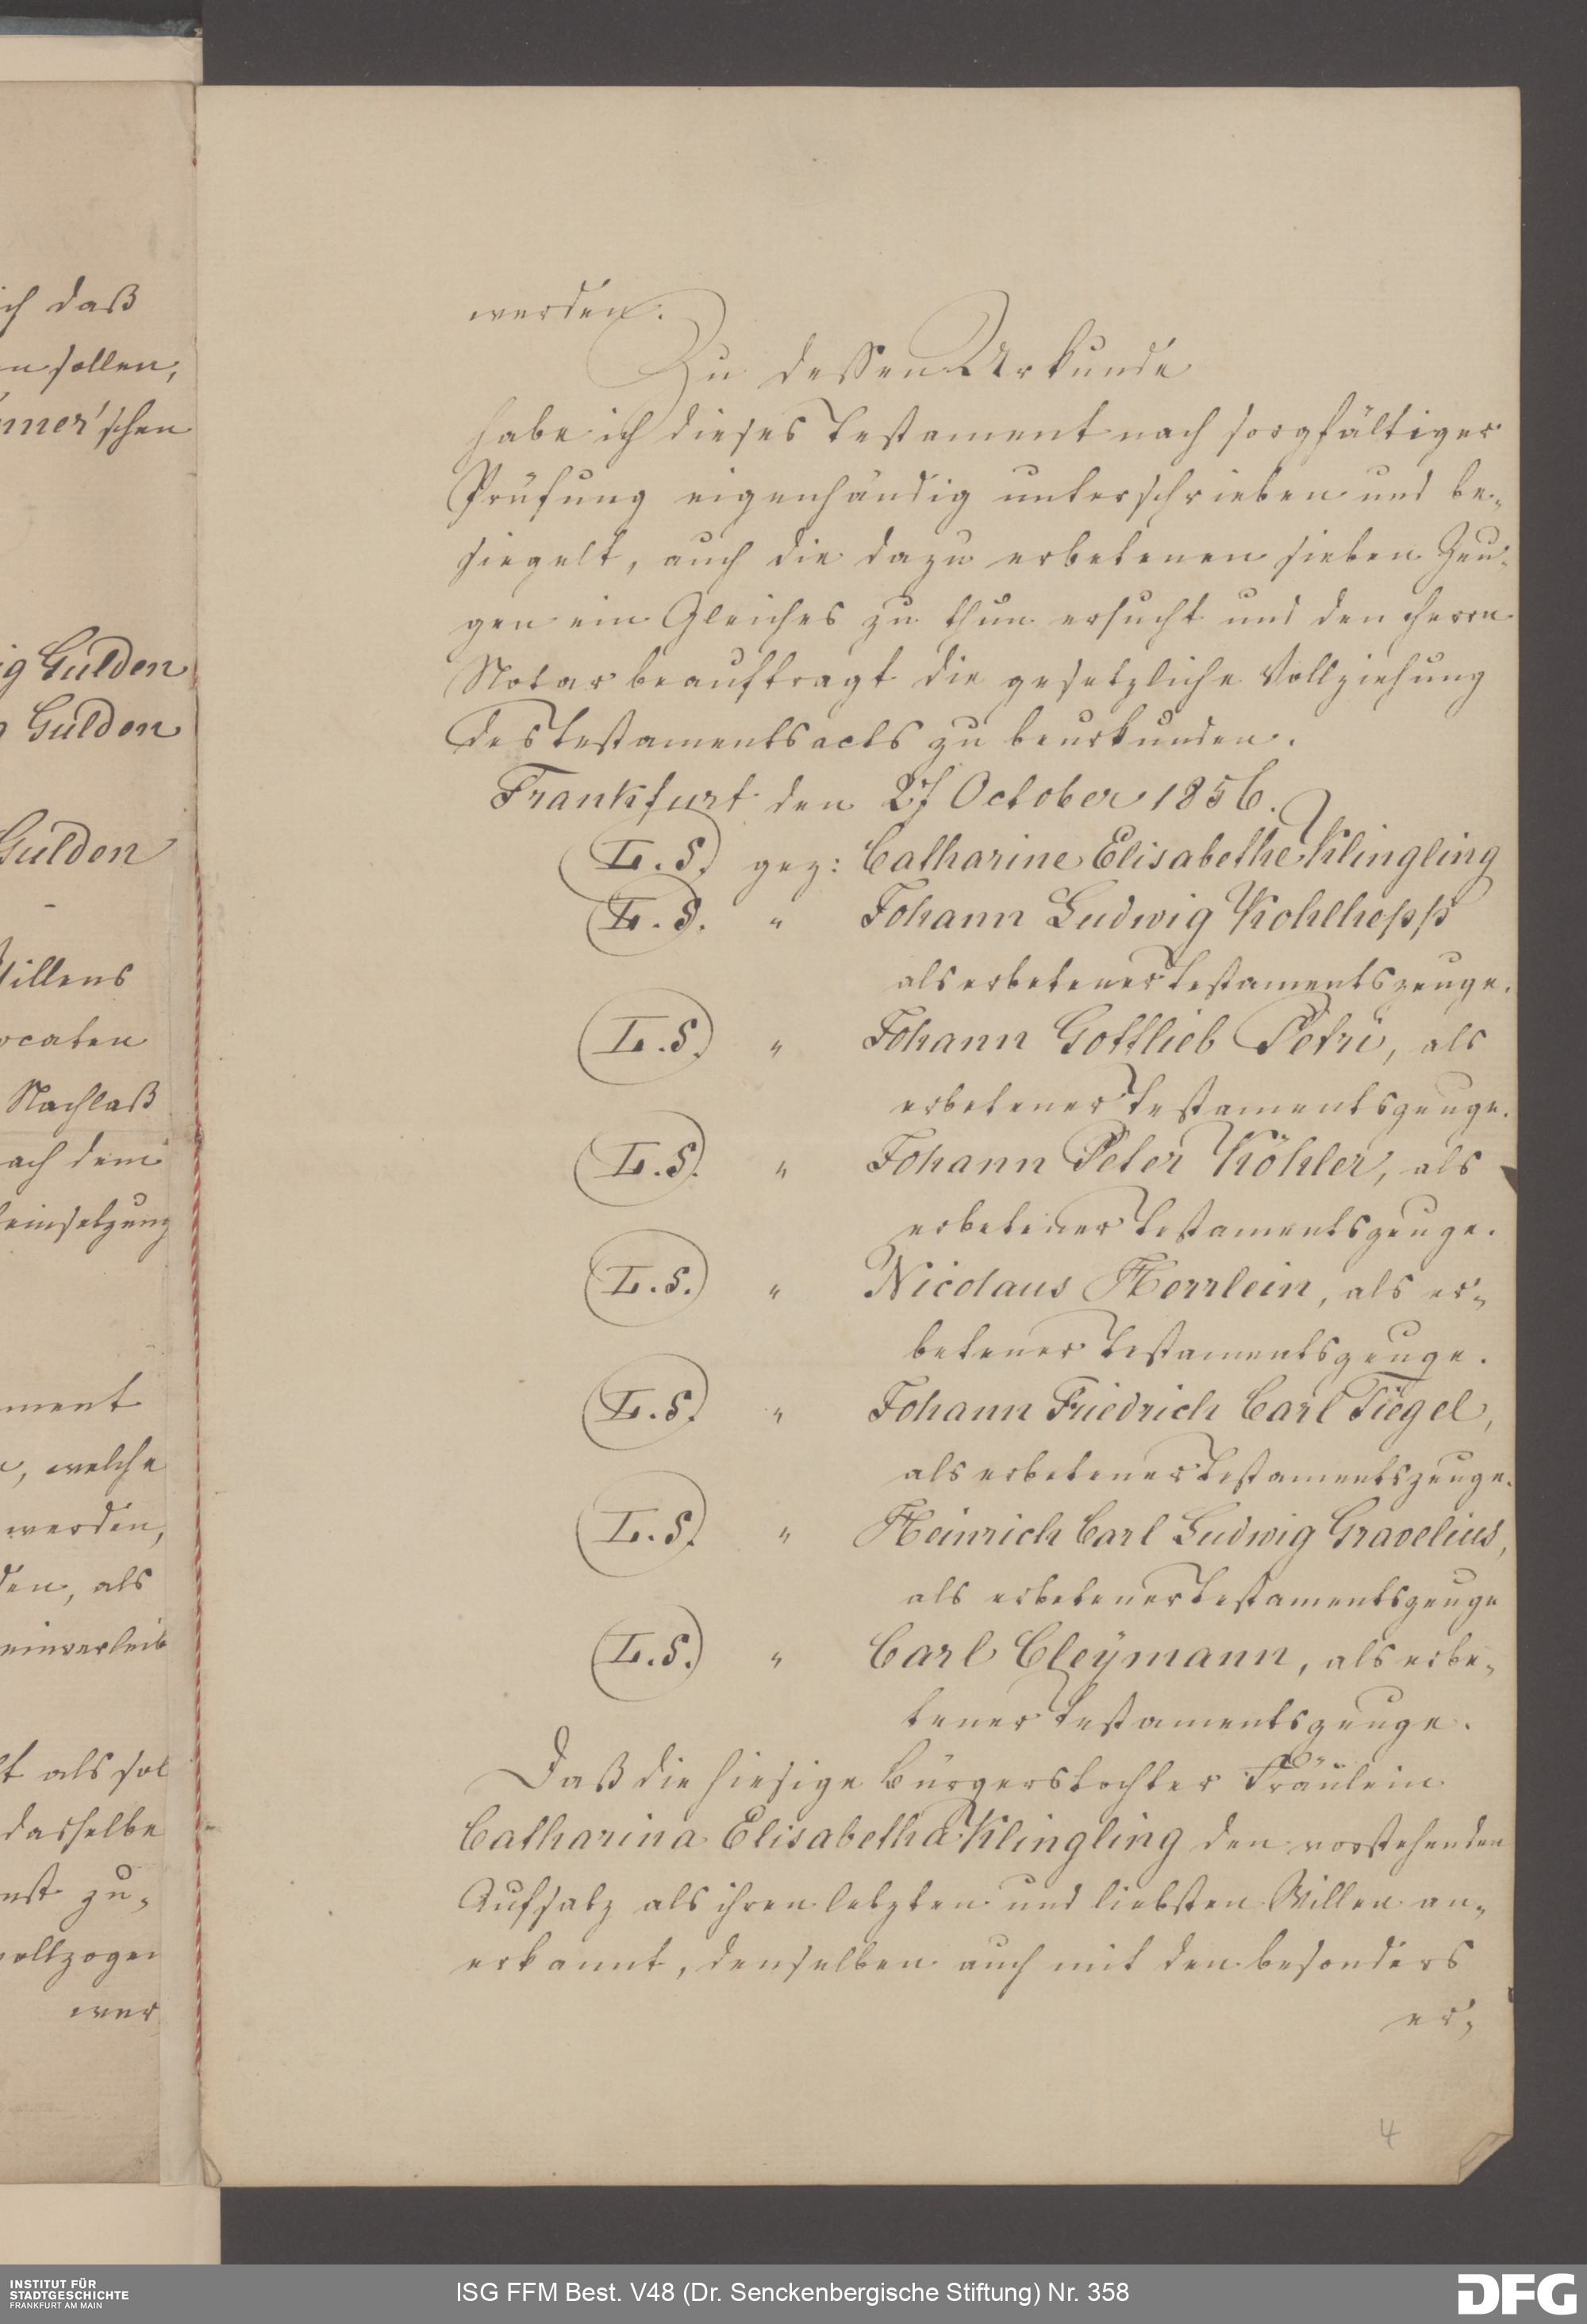 ich daß
en sollen,
mer'schen
ig Gulden
Gulden
Gulden
Willens
ocaten
Nachlaß
ach dem
einsetzung
ment
, welche
werden,
den, als
einverleib
t als sol
dasselbe
nst zu-
vollzogen
wer
werden.
Zu dessen Urkunde
habe ich dieses Testament nach sorgfältiger
Prüfung eigenhändig unterschrieben und be-
siegelt, auch die dazu erbetenen sieben Zeu-
gen ein Gleiches zu thun ersucht und den Herrn
Notar beauftragt die gesetzliche Vollziehung
des Testamentsacts zu beurkunden.
Frankfurt den 27 October 1856.
L.S. gez: Catharine Elisabethe Klingling
L.S. " Johann Ludwig Kohlhepp
als erbetener Testamentszeuge.
L.S. " Johann Gottlieb Petri, als
erbetener Testamentszeuge.
L.S. " Johann Peter Köhler, als
erbetener Testamentszeuge.
L.S. " Nicolaus Herrlein, als er-
betener Testamentszeuge.
L.S. " Johann Friedrich Carl Tiegel,
als erbetener Testamentszeuge.
L.S. " Heinrich Carl Ludwig Gravelius,
als erbetener Testamentszeuge
L.S. " Carl Cleÿmann, als erbe-
tener Testamentszeuge.
Daß die hiesige Bürgerstochter Fräulein
Catharina Elisabetha Klingling den vorstehenden
Aufsatz als ihren letzten und liebsten Willen an-
erkannt, denselben auch mit den besonders
er-
4
INSTITUT FÜR
STADTGESCHICHTE
FRANKFURT AM MAIN
ISG FFM Best. V48 (Dr. Senckenbergische Stiftung) Nr. 358
DFG